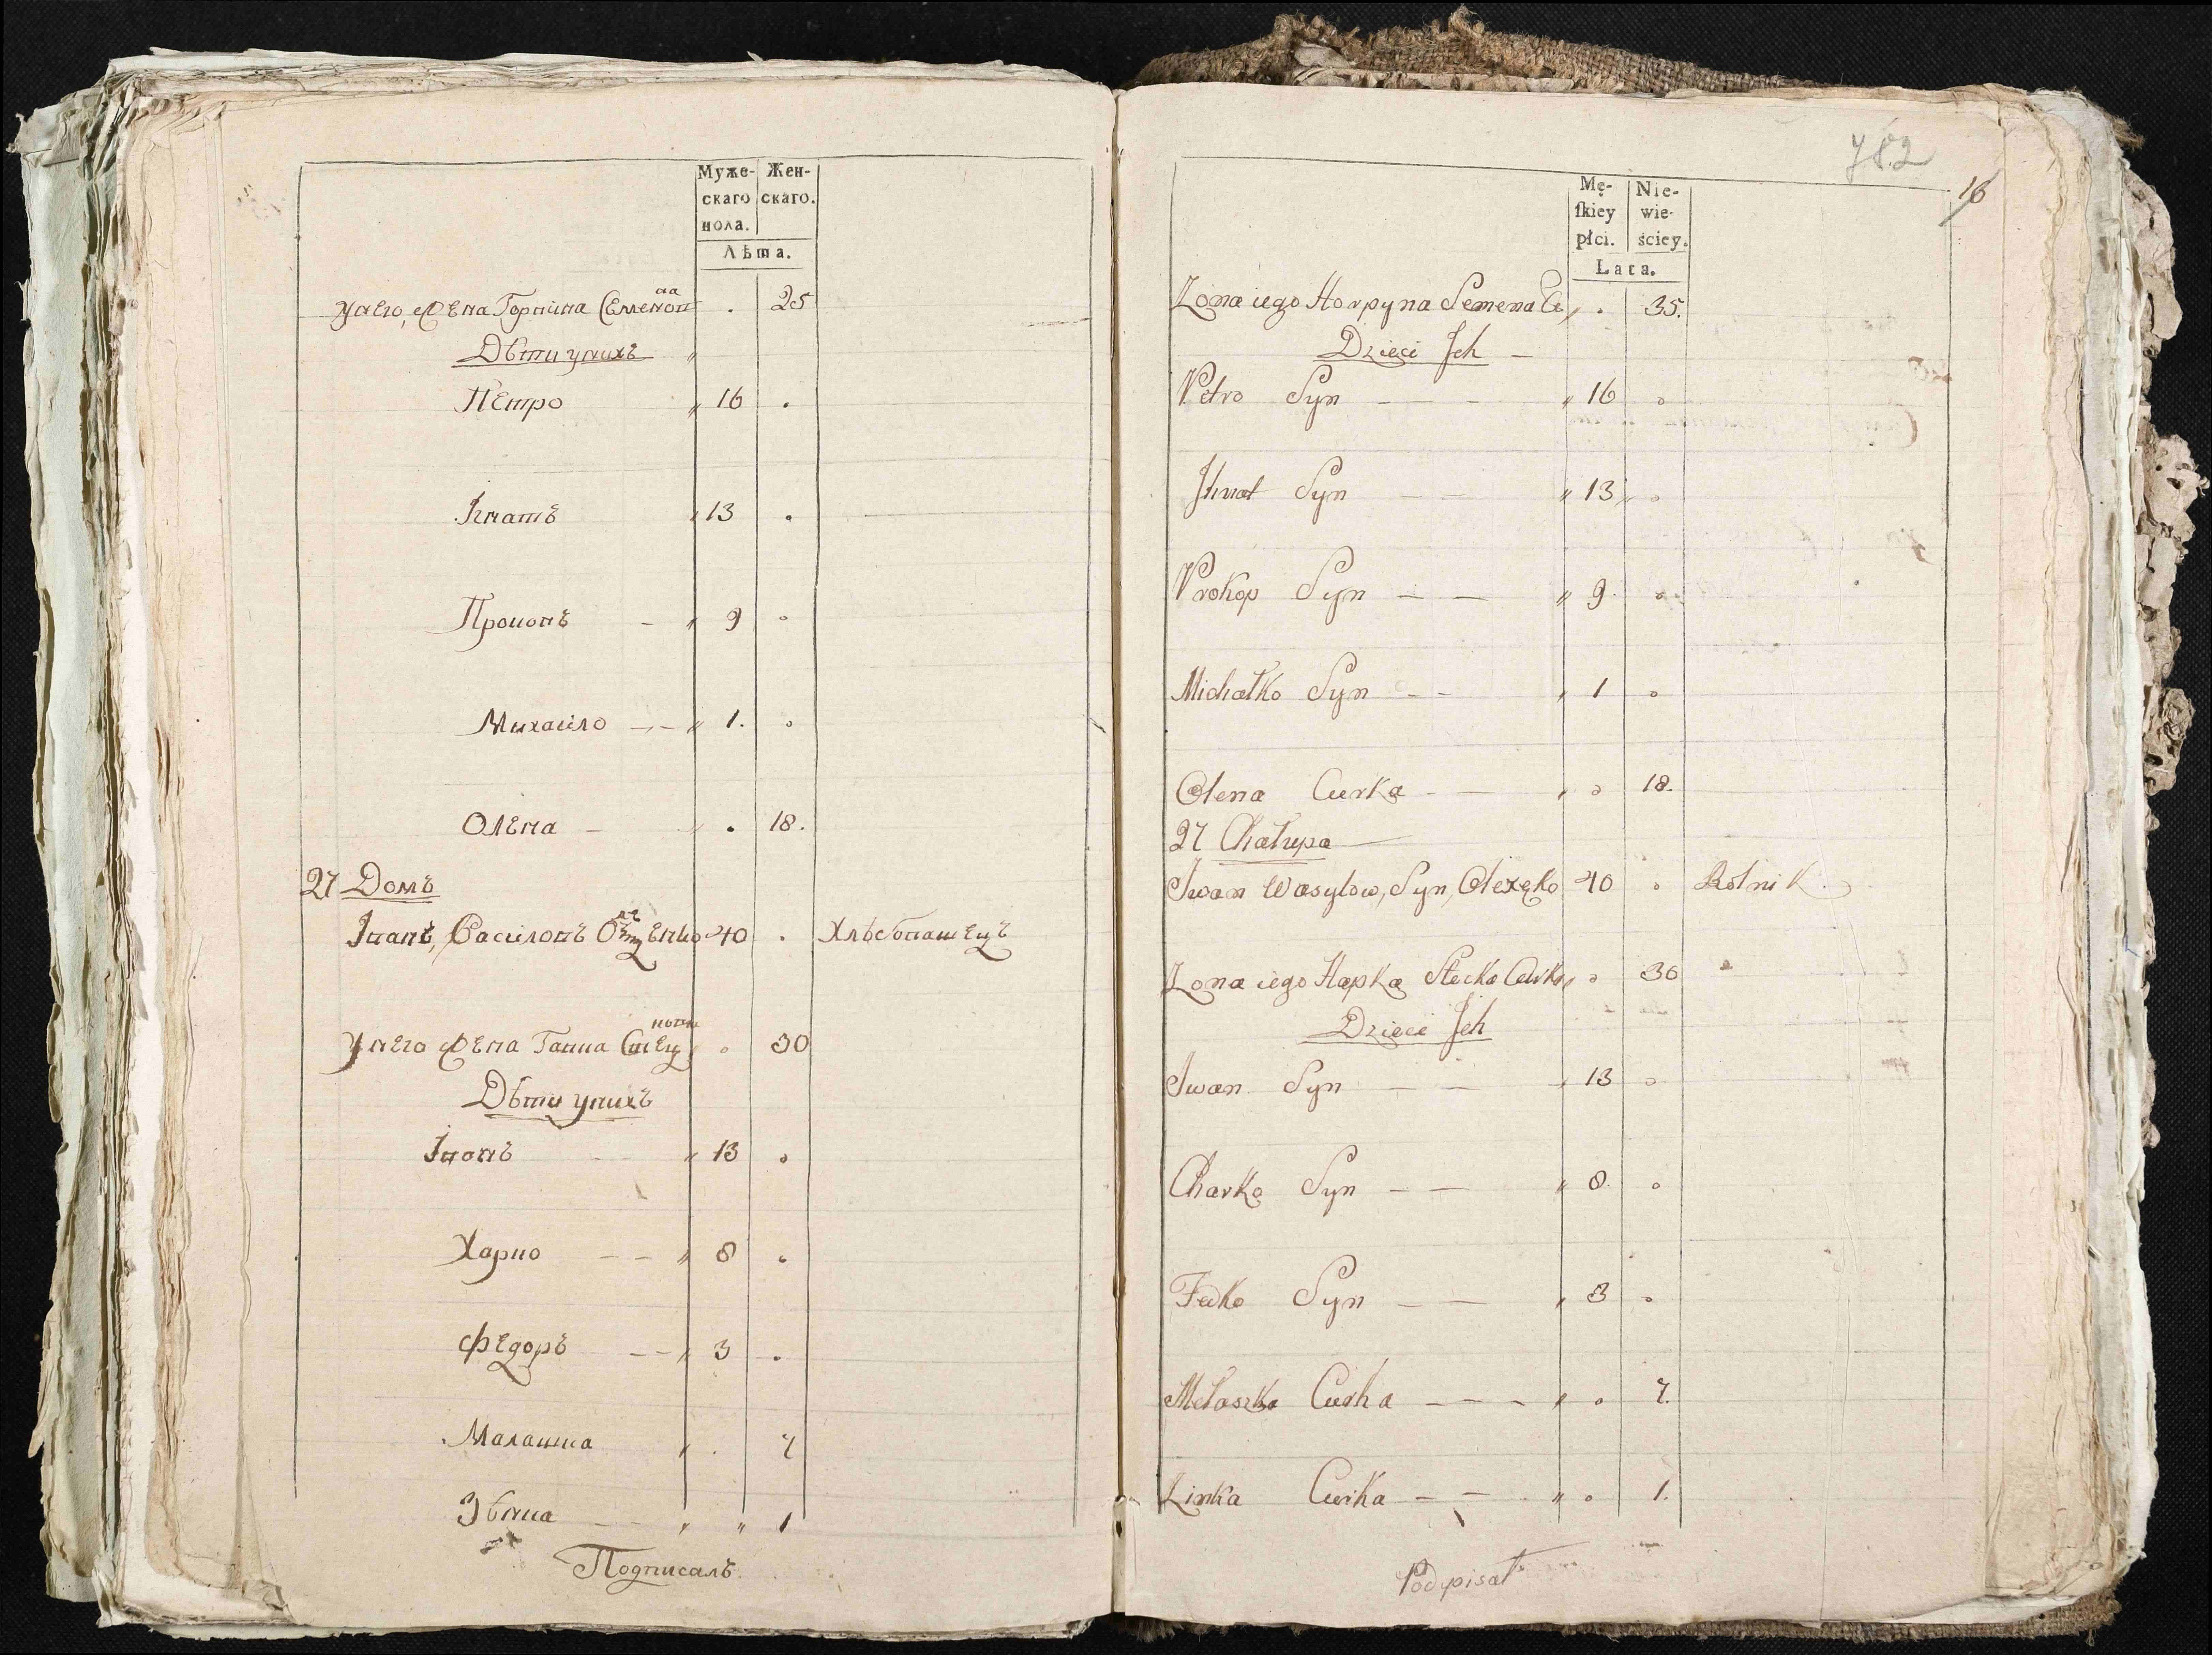 Муже-
скаго
пола.
Жен-
скаго.
Лѣта.
У него Жена Горпина Семенова 25
Дѣти у нихъ
Петро 16
Ігнатъ 13
Прокопъ 9
Михайло 1.
Олена 18.
27 Домъ
Іванъ, Василовъ 40 Хлѣбопашецъ
У него Жена Ганна 30
Дѣти у нихъ
Іванъ 13
Харко 8
Федоръ 3
Малашка 7
Зѣнка 1
Подписалъ
782
16
Mę-
skiey
płci.
Nie-
wie-
ściey.
Lata.
Zona iego Horpyna Semena Co 35.
Dzieci Jch
Petro Syn 16
Jhnat Syn 13
Prokop Syn 9
Michałko Syn 1
Olena Curka 18.
27 Chałupa
Jwan Wasylow, Syn, Olexęko 40 Rolnik
Zona iego Hapka Stecka Curka 30
Dzieci Jch
Jwan Syn 13
Charko Syn 8
Fedko Syn 3
Melaszka Curka 7.
Zinka Curka 1.
Podpisał